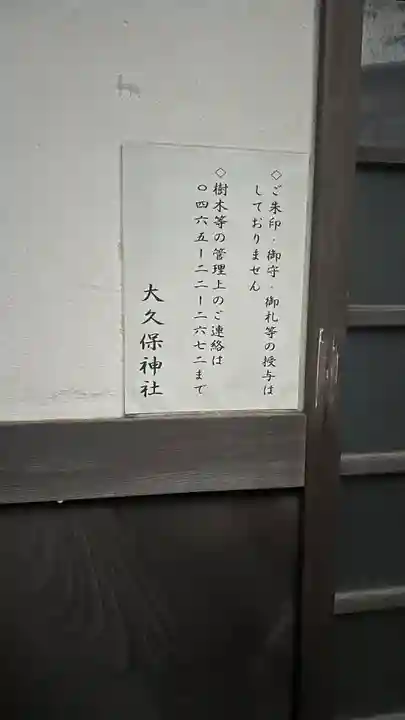 ◇ご朱印・御守・御札等の授与は
しておりません
◇樹木等の管理上のご連絡は
〇四六五ー二二ー二六七二まで
大久保神社